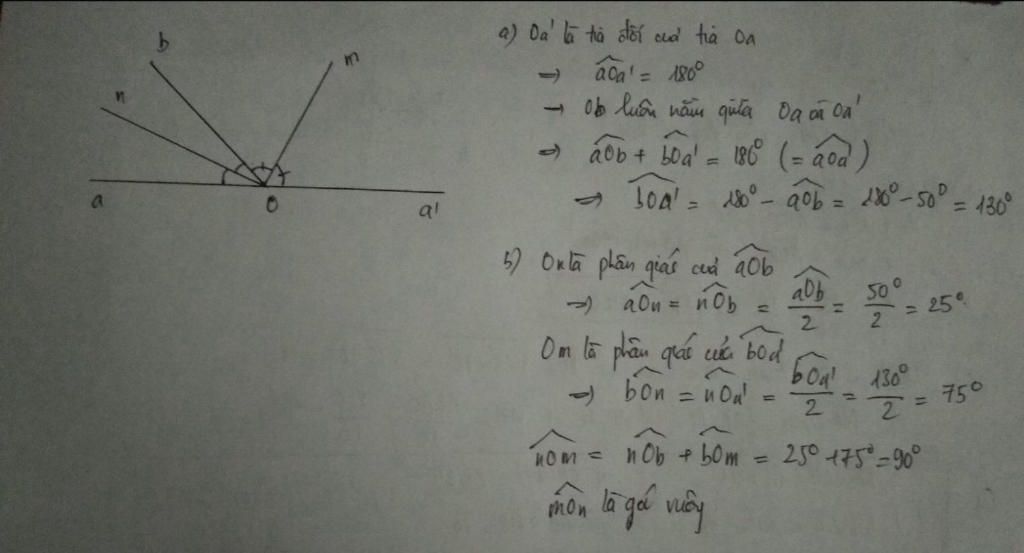 b
m
n
a
O
a'
a) Oa' là tia đối của tia Oa
→ aOa' = 180°
→ Ob luôn nằm giữa Oa và Oa'
→ aOb + bOa' = 180° (= aOa')
→ bOa' = 180° - aOb = 180° - 50° = 130°
b) On là phân giác của aOb
→ aOn = nOb = aOb/2 = 50°/2 = 25°
Om là phân giác của bOa'
→ bOn = nOa' = bOa'/2 = 130°/2 = 75°
nOm = nOb + bOm = 25° + 75° = 90°
mOn là góc vuông